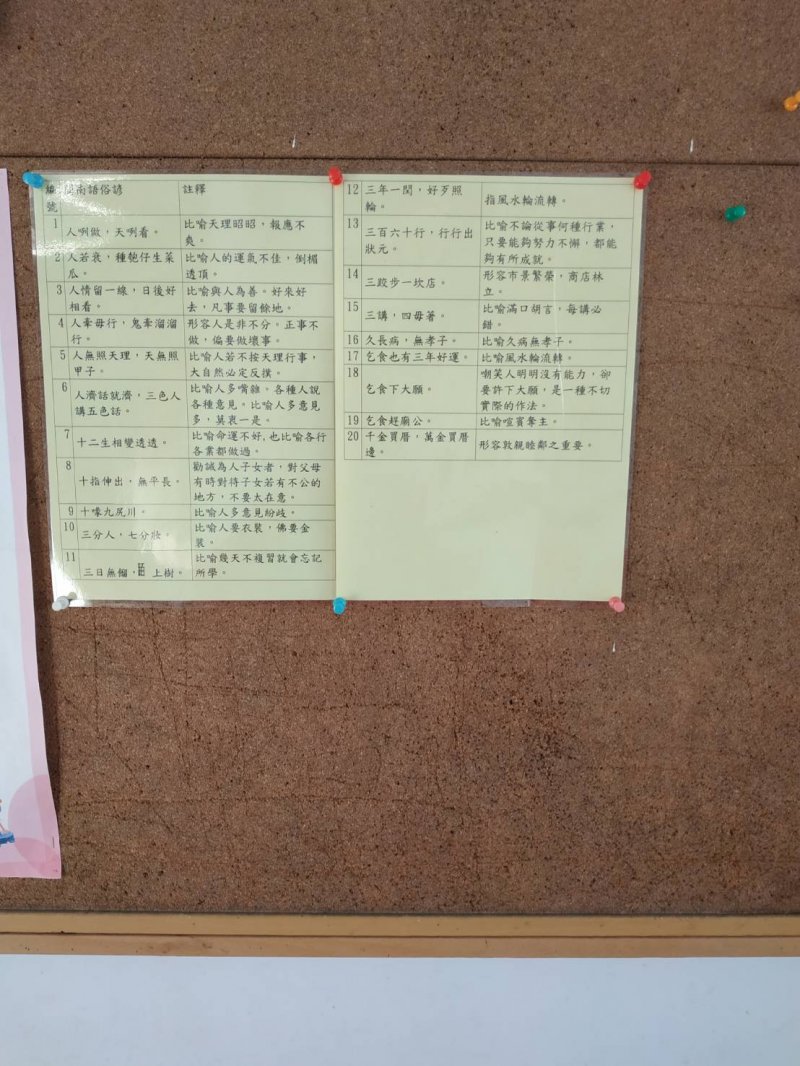 編 閩南語俗諺 註釋
號
1 人咧做，天咧看。 比喻天理昭昭，報應不
爽。
2 人若衰，種匏仔生菜
瓜。
比喻人的運氣不佳，倒楣
透頂。
3 人情留一線，日後好
相看。
比喻與人為善。好來好
去，凡事要留餘地。
4 人牽毋行，鬼牽溜溜
行。
形容人是非不分。正事不
做，偏要做壞事。
5 人無照天理，天無照
甲子。
比喻人若不按天理行事，
大自然必定反撲。
6 人濟話就濟，三色人
講五色話。
比喻人多嘴雜。各種人說
各種意見。比喻人多意見
多，莫衷一是。
7 十二生相變透透。
比喻命運不好,也比喻各行
各業都做過。
8 十指伸出，無平長。
勸誡為人子女者，對父母
有時對待子女若有不公的
地方，不要太在意。
9 十喙九尻川。 比喻人多意見紛歧。
10 三分人，七分妝。
比喻人要衣裝，佛要金
裝。
11 三日無餾， 上樹。
比喻幾天不複習就會忘記
所學。
12 三年一閏，好歹照
輪。
指風水輪流轉。
13 三百六十行，行行出
狀元。
比喻不論從事何種行業，
只要能夠努力不懈，都能
夠有所成就。
14 三跤步一坎店。
形容市景繁榮，商店林
立。
15 三講，四毋著。
比喻滿口胡言，每講必
錯。
16 久長病，無孝子。 比喻久病無孝子。
17 乞食也有三年好運。 比喻風水輪流轉。
18 乞食下大願。
嘲笑人明明沒有能力，卻
要許下大願，是一種不切
實際的作法。
19 乞食趕廟公。 比喻喧賓奪主。
20 千金買厝，萬金買厝
邊。
形容敦親睦鄰之重要。